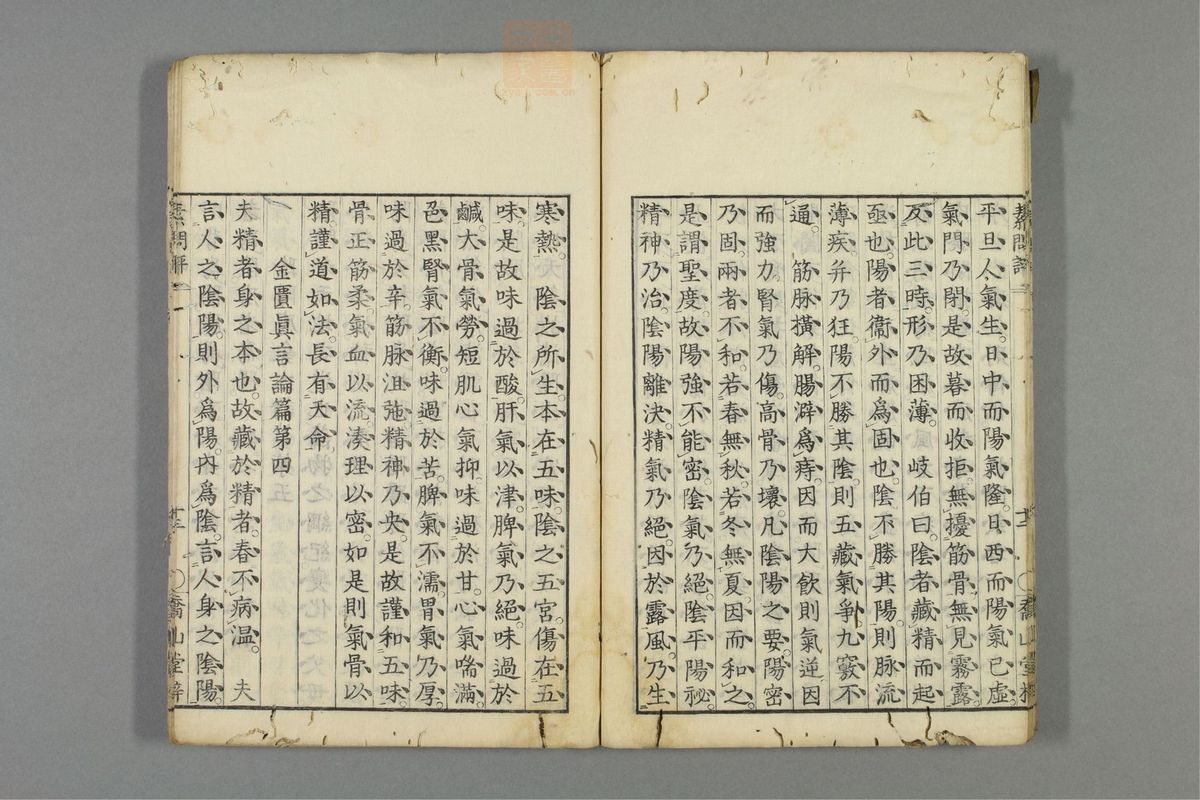 平旦人氣生。日中而陽氣隆。日西而陽氣已虛。
氣門乃閉。是故暮而收拒。無擾筋骨。無見霧露。
反此三時。形乃困薄。 岐伯曰。陰者藏精而起
亟也。陽者衞外而爲固也。陰不勝其陽。則脉流
薄疾并乃狂。陽不勝其陰。則五藏氣爭九竅不
通。 筋脉橫解。腸澼爲痔。因而大飲則氣逆。因
而強力。腎氣乃傷。高骨乃壞。凡陰陽之要。陽密
乃固。兩者不和。若春無秋。若冬無夏。因而和之。
是謂聖度。故陽強不能密。陰氣乃絕。陰平陽祕。
精神乃治。陰陽離決。精氣乃絕。因於露風。乃生
寒熱。 陰之所生。本在五味。陰之五宮。傷在五
味。是故味過於酸。肝氣以津。脾氣乃絕。味過於
鹹。大骨氣勞。短肌心氣抑。味過於甘。心氣喘滿。
色黑腎氣不衡。味過於苦。脾氣不濡。胃氣乃厚。
味過於辛。筋脉沮弛。精神乃央。是故謹和五味。
骨正筋柔。氣血以流。湊理以密。如是則氣骨以
精。謹道如法。長有天命。
金匱眞言論篇第四
夫精者身之本也。故藏於精者。春不病溫。 夫
言人之陰陽。則外爲陽。內爲陰。言人身之陰陽。